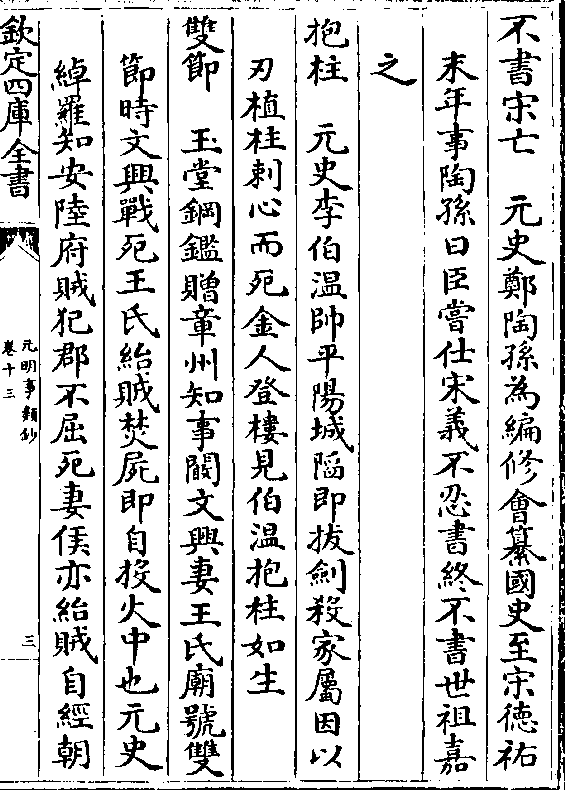 不書宋亡　元史鄭陶孫為編修會纂國史至宋德祐
末年事陶孫曰臣嘗仕宋義不忍書終不書世祖嘉
之
抱柱　元史李伯溫帥平陽城陷即拔劍殺家屬因以
刃植柱刺心而死金人登樓見伯溫抱柱如生
雙節　玉堂鋼鑑贈章州知事闞文興妻王氏廟號雙
節時文興戰死王氏紿賊焚屍即自投火中也元史
綽羅知安陸府賊犯郡不屈死妻侯亦紿賊自經朝
欽定四庫全書
元明事類鈔
卷十三
三